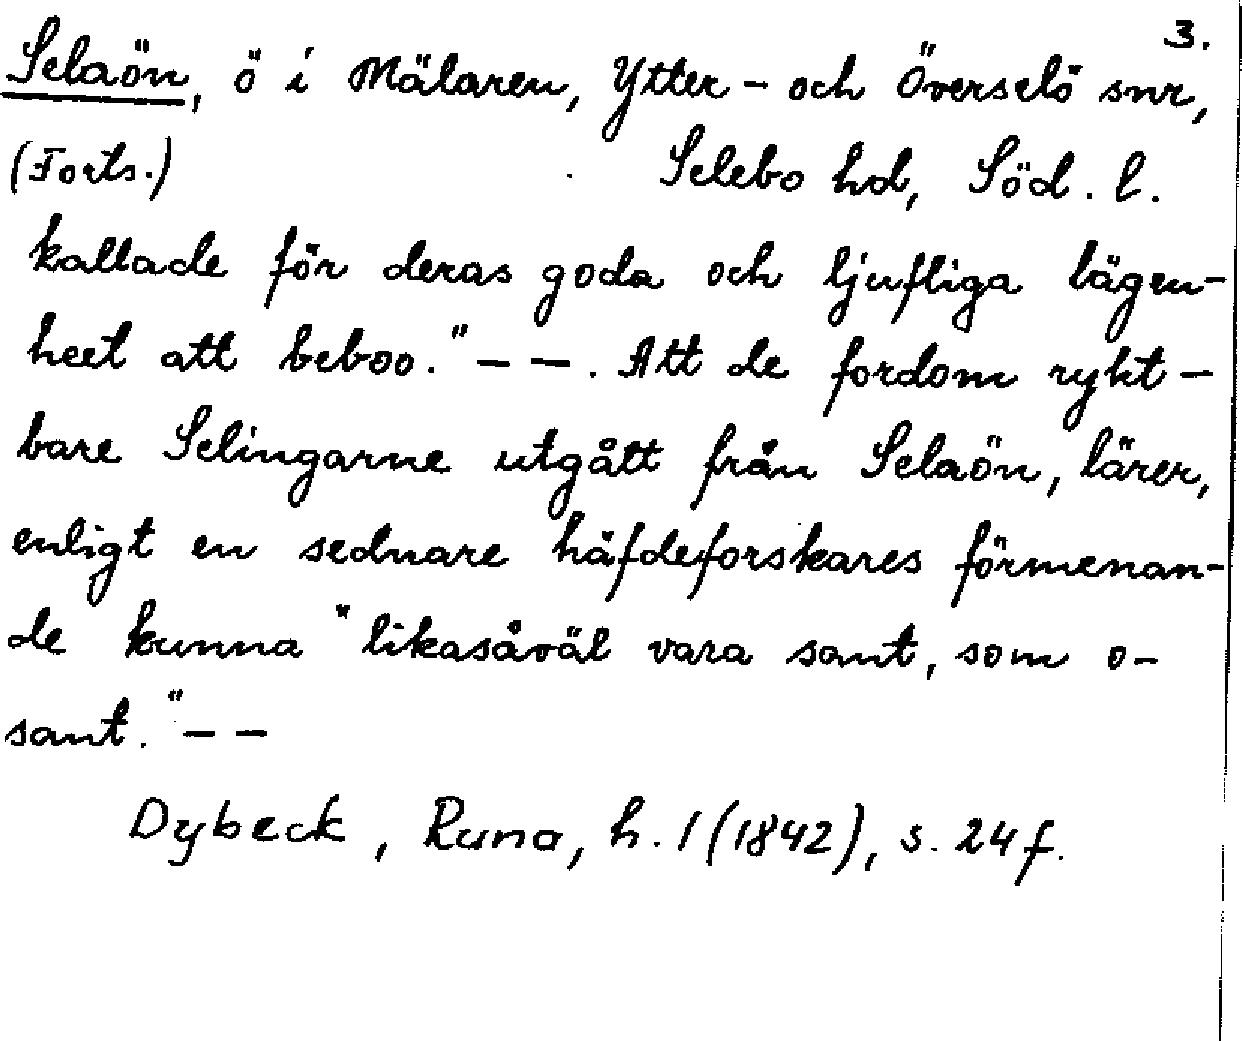 3.
Selaön, ö i Mälaren, Ytter- och Överselö snr,
(Forts.) Selebo hd, Söd. l.
kallade för deras goda och ljufliga lägen-
heet att beboo." - - . Att de fordom rykt-
bare Selingarne utgått från Selaön, lärer,
enligt en sednare häfdeforskares förmenan-
de kunna "likasåväl vara sant, som o-
sant." - -
Dybeck, Runa, h. 1 (1842), s. 24 f.